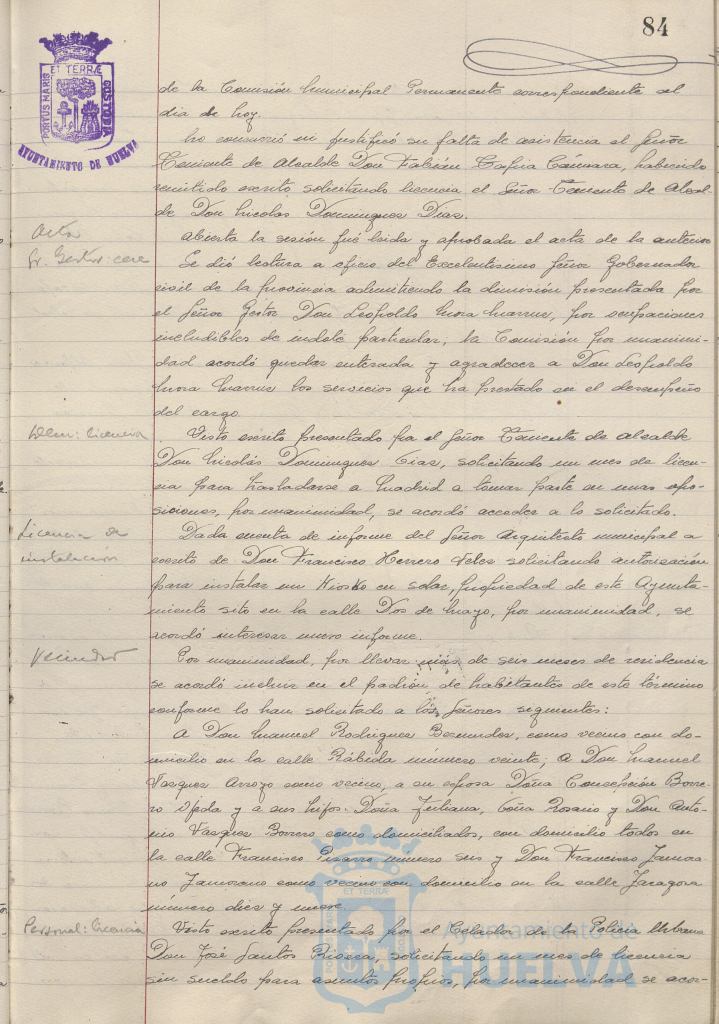 84
PORTUS MARIS ET TERRÆ CUSTODIA
AYUNTAMIENTO DE HUELVA
de la Comisión Municipal Permanente correspondiente al
dia de hoy.
No concurrió ni justificó su falta de asistencia el Señor
Teniente de Alcalde Don Fabián Cámara, habiendo
remitido escrito solicitando licencia el Señor Teniente de Alcal-
de Don Nicolas Dominguez Dias.
Acta
Abierta la sesión fué leida y aprobada el acta de la anterior
Sr. Gestor: cese
Se dió lectura a oficio del Excelentisimo Señor Gobernador
civil de la provincia admitiendo la dimisión presentada por
el Señor Gestor Don Leopoldo Mora, por ocupaciones
includibles de indole particular, la Comisión por unanimi-
dad acordó quedar enterada y agradecer a Don Leopoldo
Mora los servicios que ha prestado en el desempeño
del cargo.
Idem: licencia
Visto escrito presentado por el Señor Teniente de alcalde
Don Nicolás Dominguez Dias, solicitando un mes de licen-
cia para trasladarse a Madrid a tomar parte en unas opo-
siciones, por unanimidad, se acordó acceder a lo solicitado.
Licencia de
instalación
Dada cuenta de informe del Señor Arquitecto municipal a
escrito de Don Francisco Herrero Velez solicitando autorización
para instalar un Kiosko en solar, propiedad de este Ayunta-
miento sito en la calle Dos de Mayo, por unanimidad, se
acordó interesar nuevo informe.
Vecindad
Por unanimidad, por llevar más de seis meses de residencia
se acordó incluir en el padrón de habitantes de este término
conforme lo han solicitado a los Señores siguientes:
A Don Manuel Rodriguez Bermudez, como vecino con do-
micilio en la calle Rábida número veinte; a Don Manuel
Vasques Arroyo como vecino, a su esposa Doña Concepción Borre-
ro Ojeda y a sus hijos. Doña Juliana, Doña Rosario y Don Anto-
nio Vasques Borrero como domiciliados, con domicilio todos en
la calle Francisco Pisarro número seis y Don Francisco Zamora-
no Zamorano como vecino con domicilio en la calle Zaragoza
número diez y nueve.
Personal: licencia
Visto escrito presentado por el Celador de la Policia Urbana
Don José Santos Rioseca, solicitando un mes de licencia
sin sueldo para asuntos propios, por unanimidad se acor-
Ayuntamiento de
HUELVA